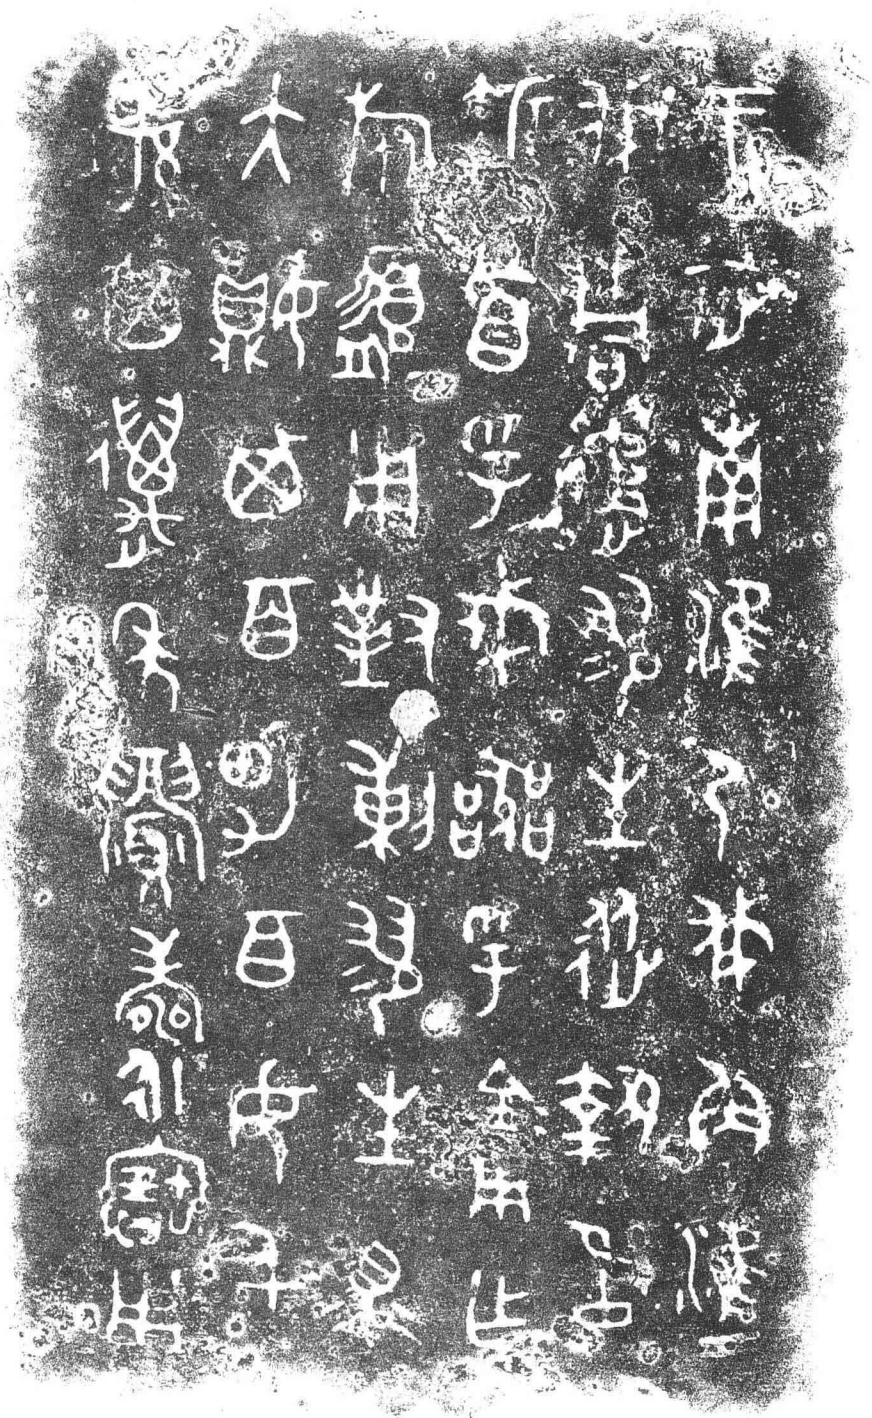 王征南淮夷伐角津
伐桐遹翏生從執訊
折首孚戎器孚金用乍
旅盨用對剌翏生眔
大㜏其百男百女千
孫其邁年眉壽永寶用